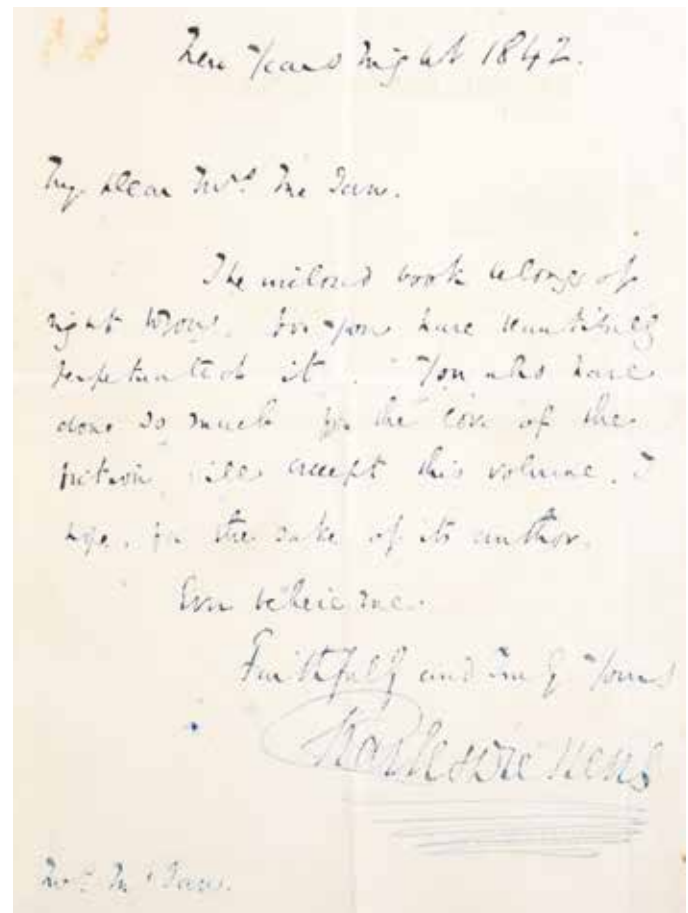 New Years Night 1842.
My dear Mrs. McIan.
The enclosed book belongs of
right to you, for you have beautifully
perpetuated it. You who have
done so much for the love of the
fiction will accept this volume, I
hope, for the sake of its author.
Ever believe me
Faithfully and Truly Yours
Charles Dickens
Mrs. McIan.